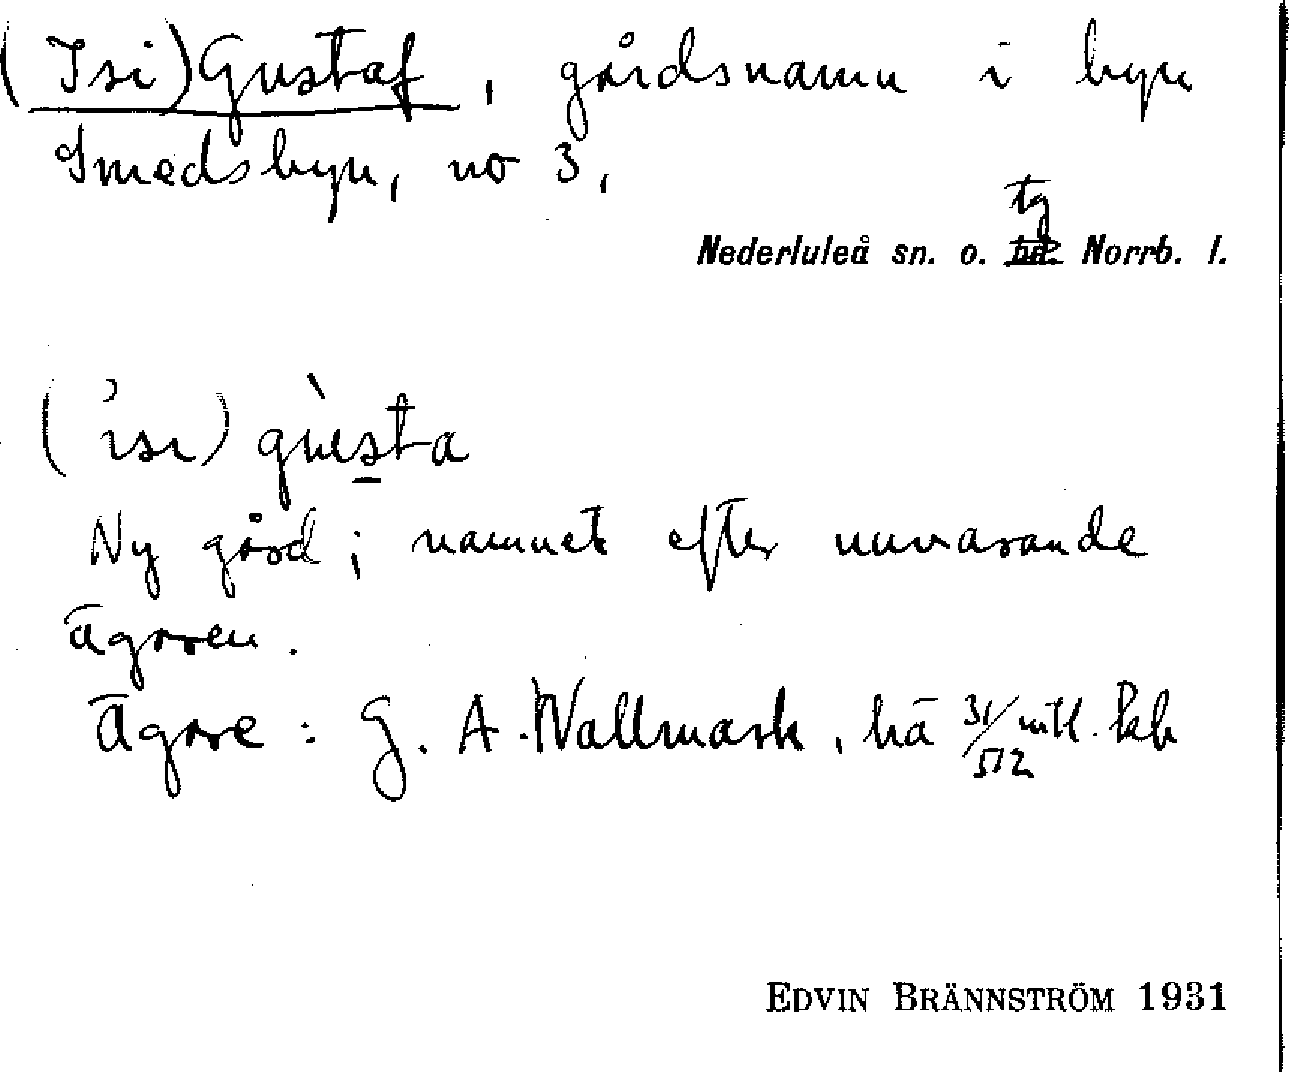 (Isi)Gustaf, gårdsnamn i byn
Smedsbyn, no 3,
tg
Nederluleå sn. o. Norrb. l.
(ísı) gùsta
Ny gård; namnet efter nuvarande
ägaren.
Ägare: G. A. Wallmark, hä 31/512 mtl.
EDVIN BRÄNNSTRÖM 1931